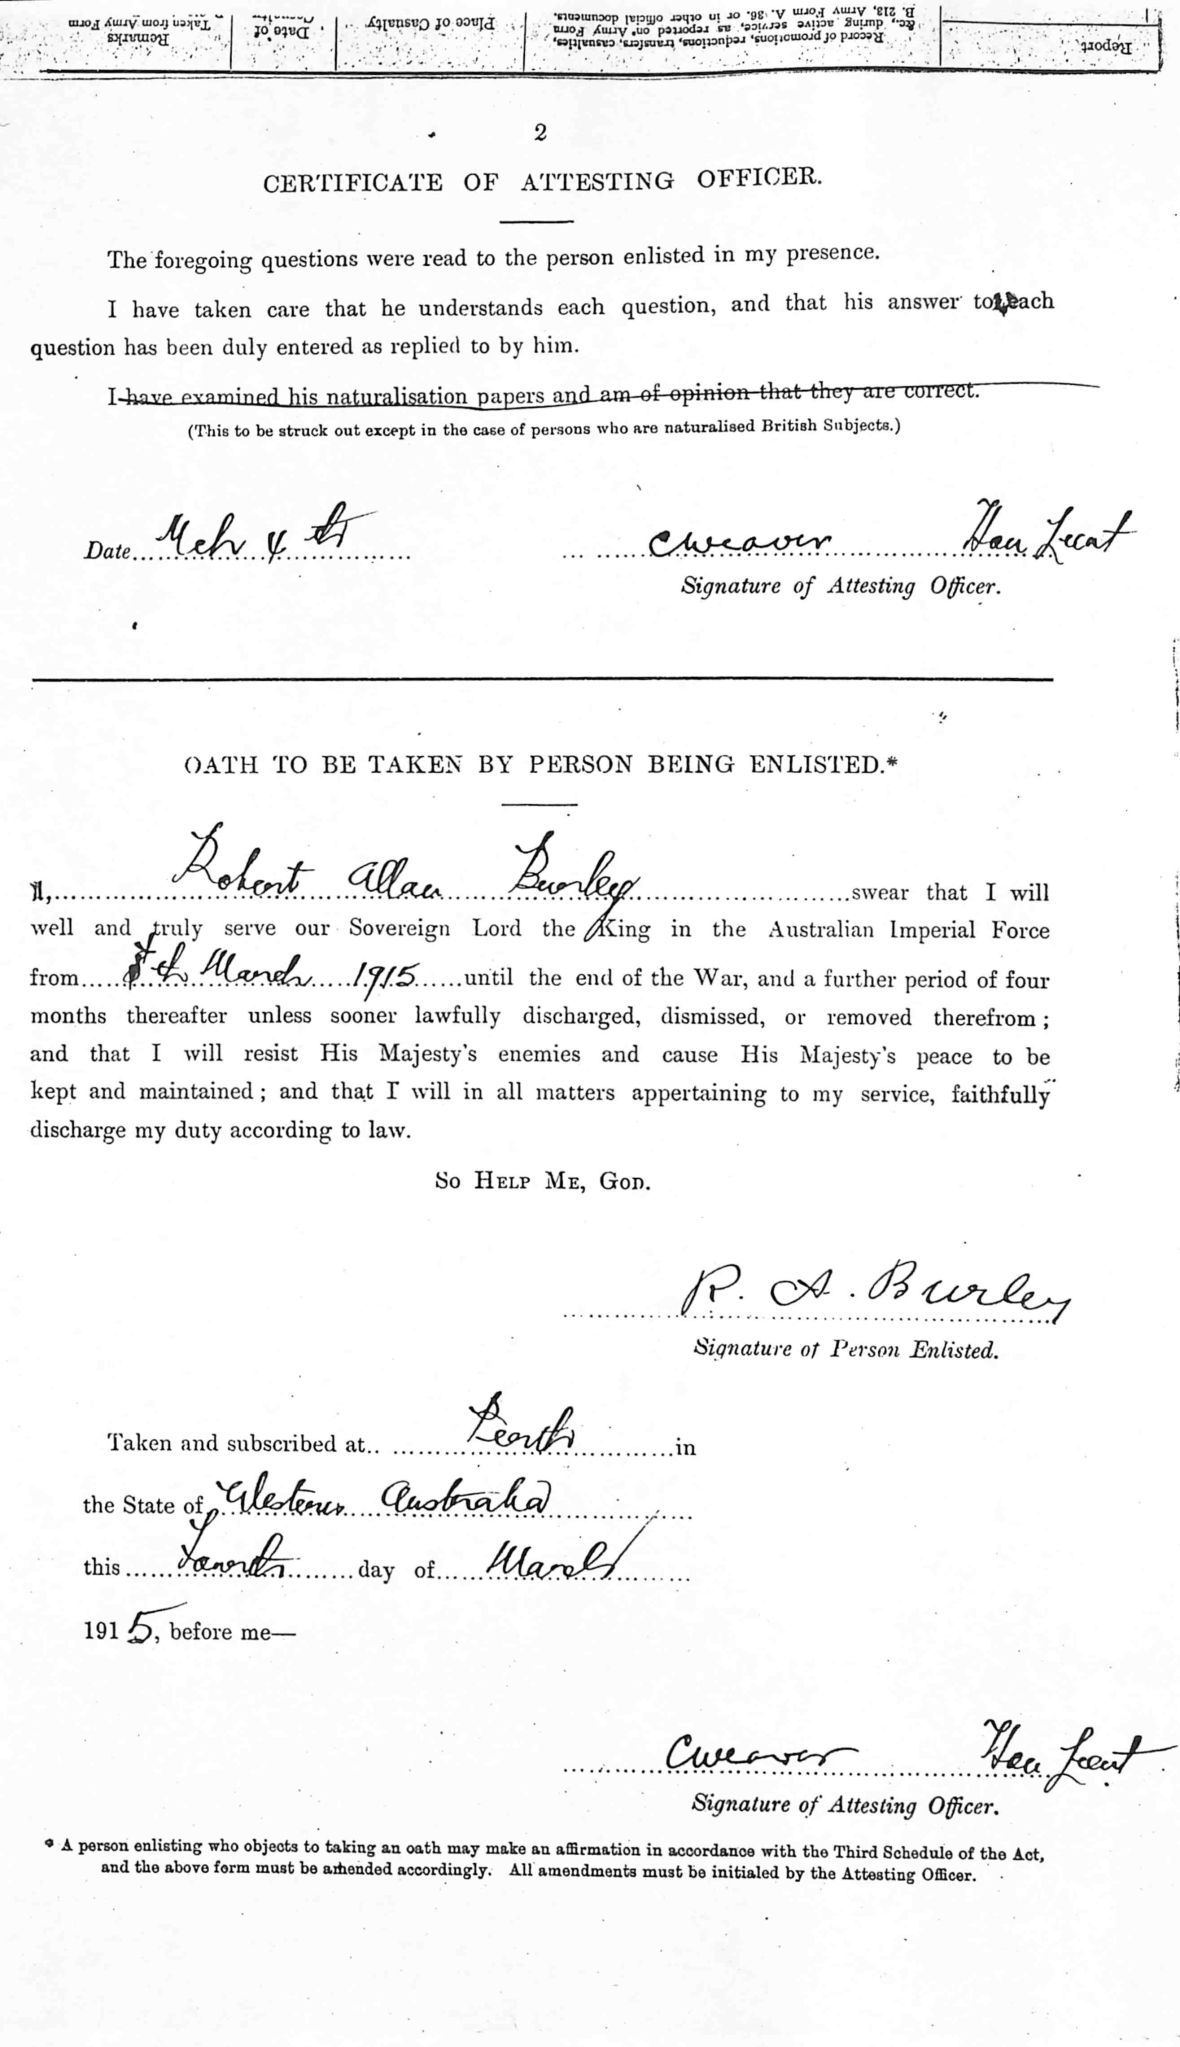 Report
Record of promotions, reductions, transfers, casualties,
&c., during active service, as reported on Army Form
B. 213, Army Form A. 36. or in other official documents.
Place of Casualty
Date of
Remarks
Taken from Army Form
2
CERTIFICATE OF ATTESTING OFFICER.
The foregoing questions were read to the person enlisted in my presence.
I have taken care that he understands each question, and that his answer to each
question has been duly entered as replied to by him.
I have examined his naturalisation papers and am of opinion that they are correct.
(This to be struck out except in the case of persons who are naturalised British Subjects.)
Date Mch 4th CWeaver Hon Lieut
Signature of Attesting Officer.
OATH TO BE TAKEN BY PERSON BEING ENLISTED.*
I, Robert Allan Burley swear that I will
well and truly serve our Sovereign Lord the King in the Australian Imperial Force
from March 1915 until the end of the War, and a further period of four
months thereafter unless sooner lawfully discharged, dismissed, or removed therefrom ;
and that I will resist His Majesty's enemies and cause His Majesty's peace to be
kept and maintained ; and that I will in all matters appertaining to my service, faithfully
discharge my duty according to law.
SO HELP ME, GOD.
R. A. Burley
Signature of Person Enlisted.
Taken and subscribed at Perth in
the State of Western Australia
this Fourth day of March
1915, before me—
CWeaver Hon Lieut
Signature of Attesting Officer.
* A person enlisting who objects to taking an oath may make an affirmation in accordance with the Third Schedule of the Act,
and the above form must be amended accordingly. All amendments must be initialed by the Attesting Officer.